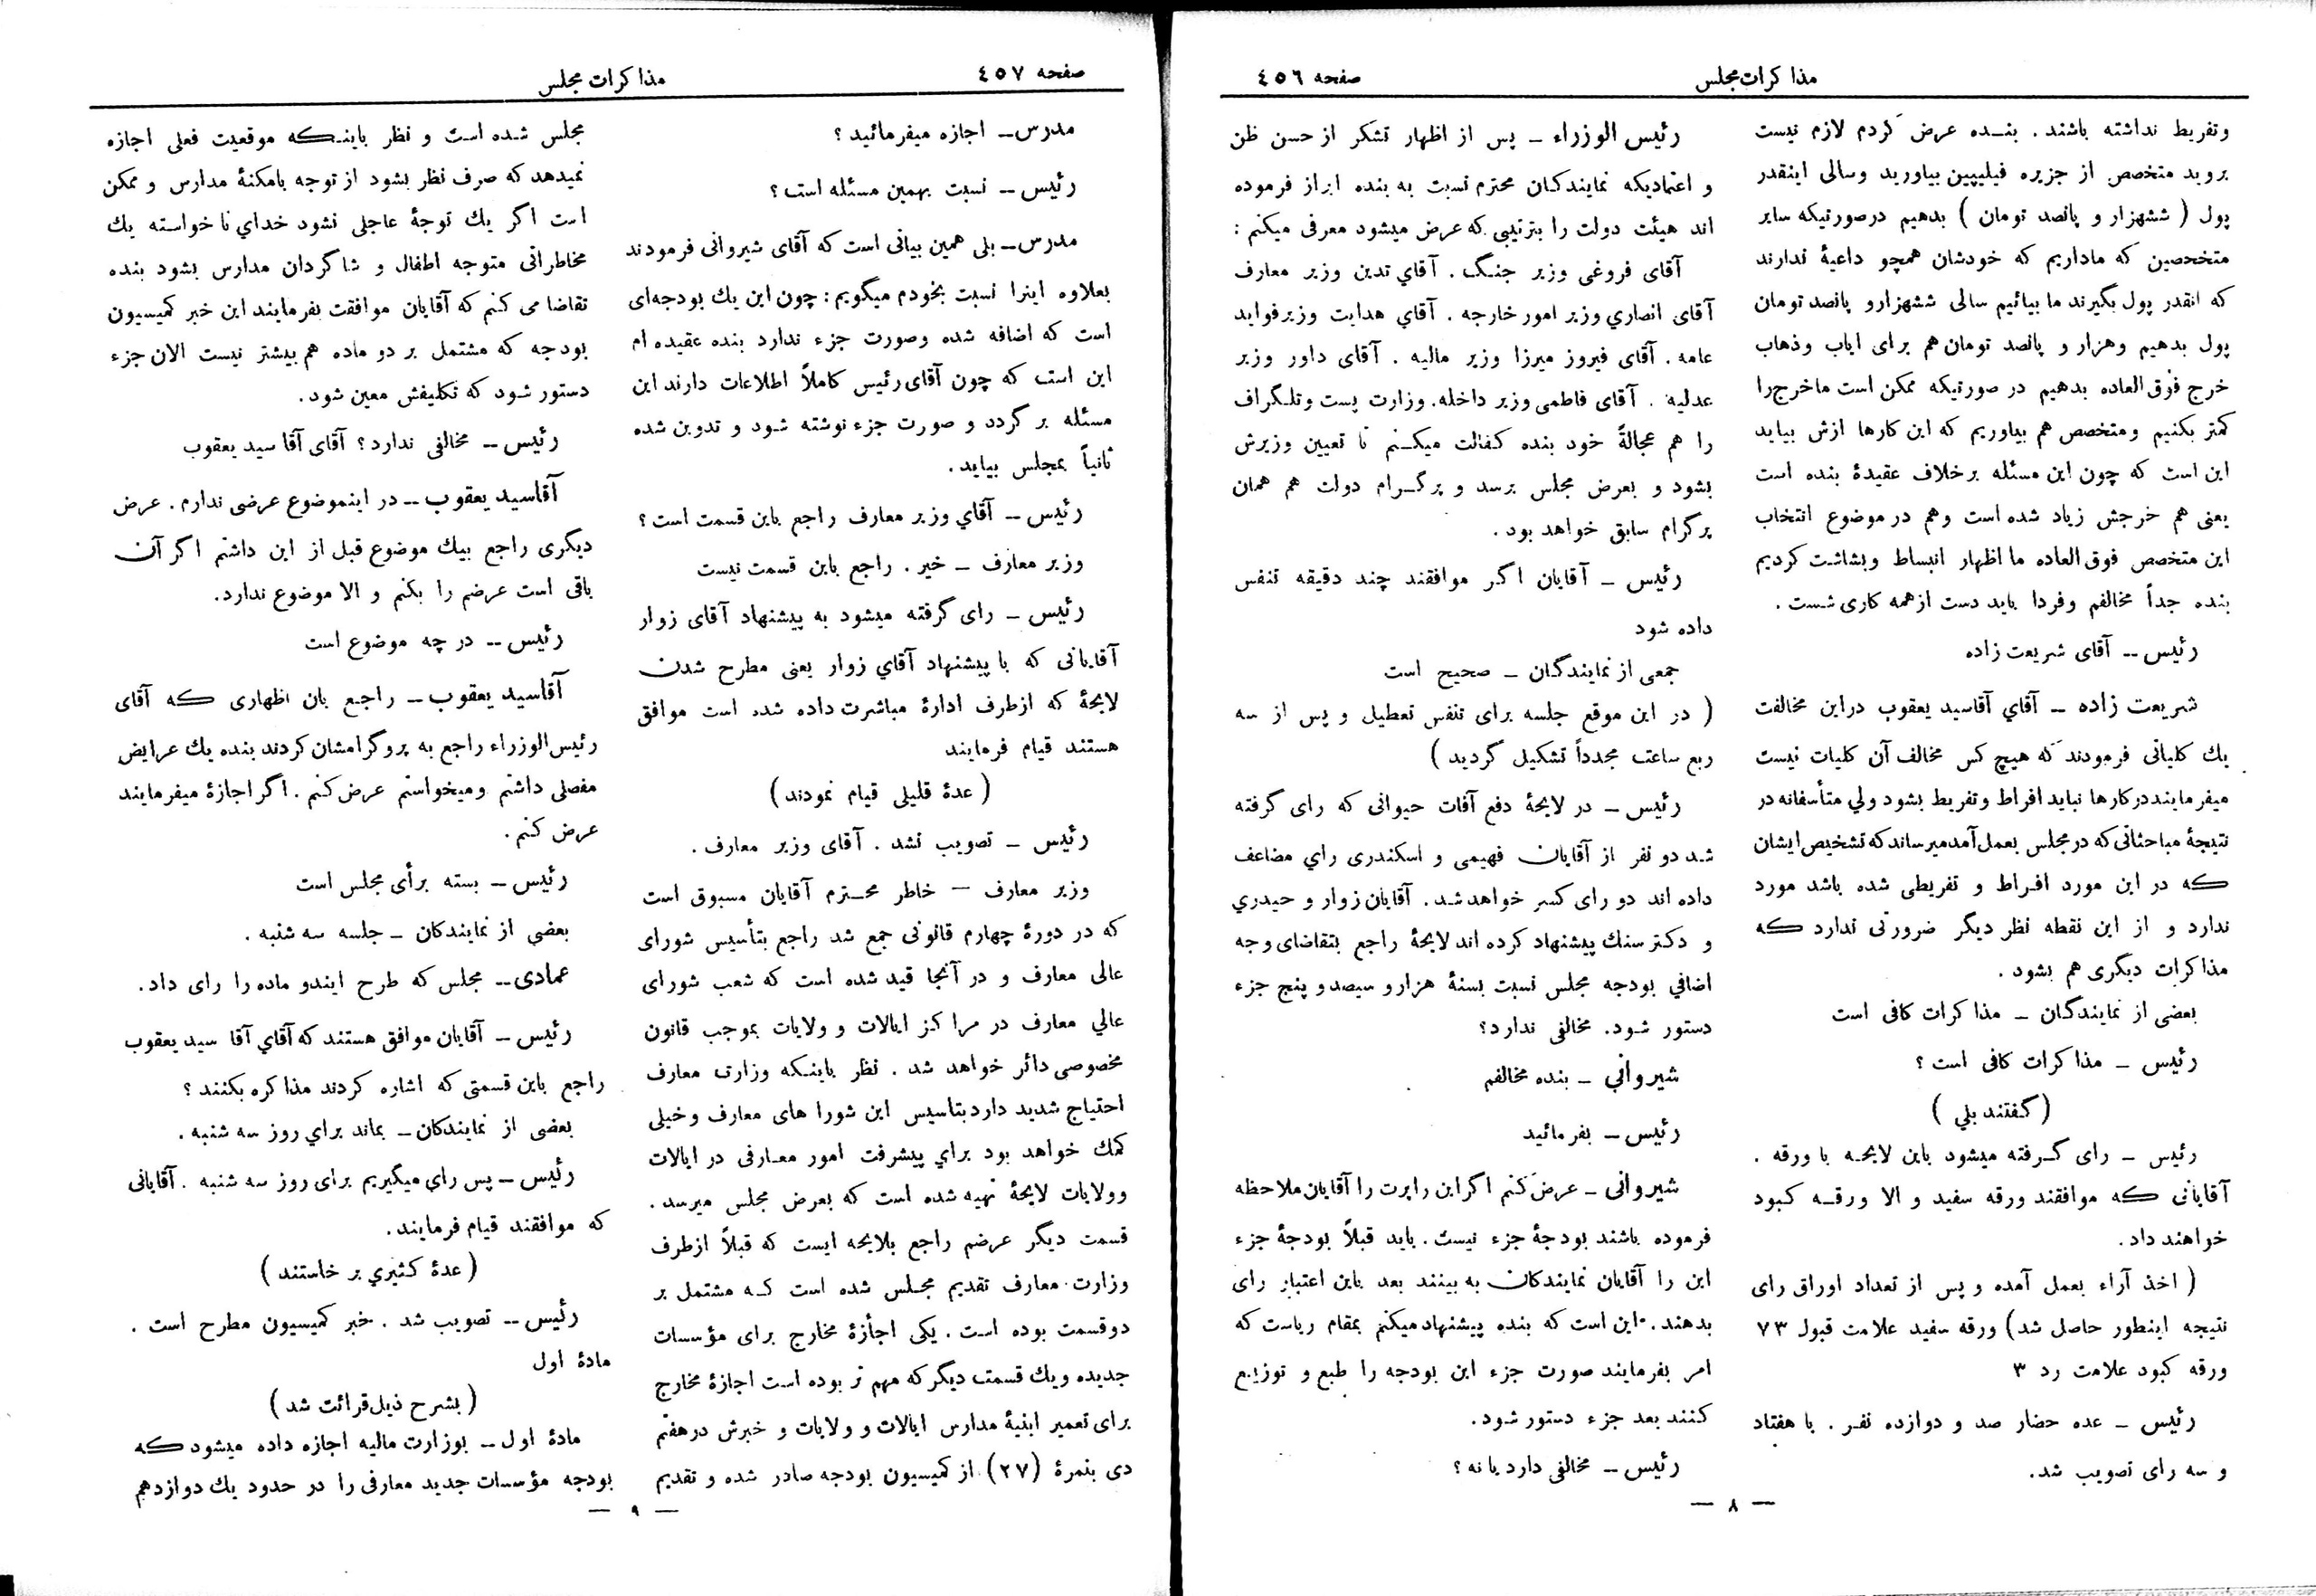 مذاکرات مجلس
صفحه ٤٥٦
وتفریط نداشته باشند. بنده عرض کردم لازم نیست
بروید متخصص از جزیره فیلیپین بیاورید وسالی اینقدر
پول ( ششهزار و پانصد تومان ) بدهیم درصورتیکه سایر
متخصصین که ماداریم که خودشان همچو داعیهٔ ندارند
که انقدر پول بگیرند ما بیائیم سالی ششهزارو پانصد تومان
پول بدهیم وهزار و پانصد تومان هم برای ایاب وذهاب
خرج فوق العاده بدهیم در صورتیکه ممکن است ماخرج را
کمتر بکنیم ومتخصص هم بیاوریم که این کارها ازش بیاید
این است که چون این مسئله برخلاف عقیدهٔ بنده است
یعنی هم خرجش زیاد شده است وهم در موضوع انتخاب
این متخصص فوق العاده ما اظهار انبساط وبشاشت کردیم
بنده جداً مخالفم وفردا باید دست ازهمه کاری شست .
رئیس -- آقای شریعت زاده
شریعت زاده – آقاي آقاسید یعقوب دراین مخالفت
یك کلیاتی فرمودند که هیچ کس مخالف آن کلیات نیست
میفرمایند درکارها نباید افراط وتفریط بشود ولي متأسفانه در
نتیجهٔ مباحثاتی که درمجلس بعمل آمد میرساند که تشخیص ایشان
که در این مورد افراط و تفریطی شده باشد مورد
ندارد و از این نقطه نظر دیگر ضرورتی ندارد که
مذاکرات دیگری هم بشود .
بعضی از نمایندگان – مذاکرات کافی است
رئیس – مذاکرات کافی است ؟
( گفتند بلي )
رئیس – رای گرفته میشود باین لایحه با ورقه .
آقایانی که موافقند ورقه سفید و الا ورقه کبود
خواهند داد.
( اخذ آراء بعمل آمده و پس از تعداد اوراق رای
نتیجه اینطور حاصل شد) ورقه سفید علامت قبول ٧٣
ورقه کبود علامت رد ٣
رئیس – عده حضار صد و دوازده نفر . با هفتاد
و سه رای تصویب شد.
رئیس الوزراء – پس از اظهار تشکر از حسن ظن
و اعتمادیکه نمایندگان محترم نسبت به بنده ابراز فرموده
اند هیئت دولت را بترتیبی که عرض میشود معرفی میکنم :
آقای فروغی وزیر جنگ . آقاي تدین وزیر معارف
آقای انصاري وزیر امور خارجه . آقاي هدایت وزیرفواید
عامه . آقای فیروز میرزا وزیر مالیه . آقای داور وزیر
عدلیه . آقای فاطمی وزیر داخله. وزارت پست وتلگراف
را هم عجالةً خود بنده کفالت میکنم تا تعیین وزیرش
بشود و بعرض مجلس برسد و پرگرام دولت هم همان
پرگرام سابق خواهد بود .
رئیس – آقایان اگر موافقند چند دقیقه تنفس
داده شود
جمعی از نمایندگان – صحیح است
( در این موقع جلسه برای تنفس تعطیل و پس از سه
ربع ساعت مجدداً تشکیل گردید )
رئیس – در لایحهٔ دفع آفات حیوانی که رای گرفته
شد دو نفر از آقایان فهیمی و اسکندری راي مضاعف
داده اند دو رای کسر خواهد شد . آقایان زوار و حیدري
و دکتر سنك پیشنهاد کرده اند لایحهٔ راجع بتقاضای وجه
اضافي بودجه مجلس نسبت بسنهٔ هزارو سیصد و پنج جزء
دستور شود. مخالفی ندارد؟
شیرواني – بنده مخالفم
رئیس – بفرمائید
شیروانی – عرض کنم اگر این راپرت را آقایان ملاحظه
فرموده باشند بودجهٔ جزء نیست . باید قبلاً بودجهٔ جزء
این را آقایان نمایندکان به بینند بعد باین اعتبار رای
بدهند. این است که بنده پیشنهاد میکنم بمقام ریاست که
امر بفرمایند صورت جزء این بودجه را طبع و توزیع
کنند بعد جزء دستور شود.
رئیس – مخالفی دارد یا نه ؟
— ٨ —
صفحه ٤٥٧
مذاکرات مجلس
مدرس– اجازه میفرمائید ؟
رئیس – نسبت بهمین مسئله است ؟
مدرس– بلی همین بیانی است که آقای شیروانی فرمودند
بعلاوه اینرا نسبت بخودم میگویم : چون این یك بودجه‌ای
است که اضافه شده وصورت جزء ندارد بنده عقیده ام
این است که چون آقای رئیس کاملاً اطلاعات دارند این
مسئله بر گردد و صورت جزء نوشته شود و تدوین شده
ثانیاً بمجلس بیاید .
رئیس – آقاي وزیر معارف راجع باین قسمت است ؟
وزیر معارف – خیر . راجع باین قسمت نیست
رئیس – رای گرفته میشود به پیشنهاد آقای زوار
آقایانی که با پیشنهاد آقاي زوار یعنی مطرح شدن
لایحهٔ که ازطرف ادارهٔ مباشرت داده شده است موافق
هستند قیام فرمایند
( عدهٔ قلیلی قیام نمودند )
رئیس – تصویب نشد . آقای وزیر معارف .
وزیر معارف – خاطر محترم آقایان مسبوق است
که در دورهٔ چهارم قانونی جمع شد راجع بتأسیس شورای
عالی معارف و در آنجا قید شده است که شعب شورای
عالي معارف در مراکز ایالات و ولایات بموجب قانون
مخصوصی دائر خواهد شد . نظر باینکه وزارت معارف
احتیاج شدید دارد بتاسیس این شورا های معارف وخیلی
کمك خواهد بود براي پیشرفت امور معارفی در ایالات
وولایات لایحهٔ تهیه شده است که بعرض مجلس میرسد .
قسمت دیگر عرضم راجع بلایحه ایست که قبلاً ازطرف
وزارت معارف تقدیم مجلس شده است که مشتمل بر
دوقسمت بوده است . یکی اجازهٔ مخارج برای مؤسسات
جدیده ویك قسمت دیگر که مهم تر بوده است اجازهٔ مخارج
برای تعمیر ابنیهٔ مدارس ایالات و ولایات و خبرش در هفتم
دی بنمرهٔ (٢٧) از کمیسیون بودجه صادر شده و تقدیم
مجلس شده است و نظر باینکه موقعیت فعلی اجازه
نمیدهد که صرف نظر بشود از توجه بامکنهٔ مدارس و ممکن
است اگر یك توجهٔ عاجلی نشود خداي نا خواسته یك
مخاطراتی متوجه اطفال و شاگردان مدارس بشود بنده
تقاضا می کنم که آقایان موافقت بفرمایند این خبر کمیسیون
بودجه که مشتمل بر دو ماده هم بیشتر نیست الان جزء
دستور شود که تکلیفش معین شود .
رئیس -- مخالفی ندارد ؟ آقای آقا سید یعقوب
آقاسید یعقوب -- در اینموضوع عرضی ندارم . عرض
دیگری راجع بیك موضوع قبل از این داشتم اگر آن
باقی است عرضم را بکنم و الا موضوع ندارد.
رئیس -- در چه موضوع است
آقاسید یعقوب – راجع بان اظهاری که آقای
رئیس الوزراء راجع به پروگرامشان کردند بنده یك عرایض
مفصلی داشتم ومیخواستم عرض کنم . اگر اجازهٔ میفرمایند
عرض کنم .
رئیس – بسته برأی مجلس است
بعضی از نمایندکان – جلسه سه شنبه .
عمادی -- مجلس که طرح ایندو ماده را رای داد .
رئیس – آقایان موافق هستند که آقاي آقا سید یعقوب
راجع باین قسمتی که اشاره کردند مذاکره بکنند ؟
بعضی از نمایندکان– بماند براي روز سه شنبه .
رئیس – پس راي میگیریم برای روز سه شنبه . آقایانی
که موافقند قیام فرمایند.
( عدهٔ کثیري بر خاستند )
رئیس -- تصویب شد . خبر کمیسیون مطرح است .
مادهٔ اول
( بشرح ذیل قرائت شد )
مادهٔ اول – بوزارت مالیه اجازه داده میشود که
بودجه مؤسسات جدید معارفی را در حدود یك دوازدهم
— ٩ —